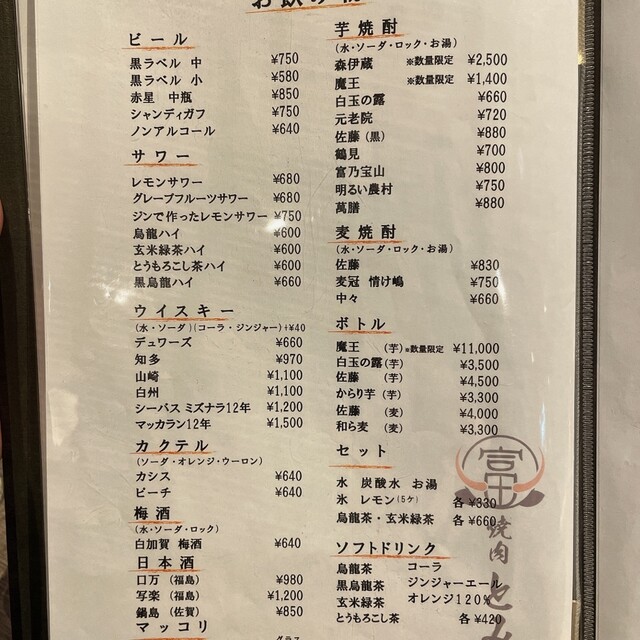 お飲み物
ビール
黒ラベル 中 ¥750
黒ラベル 小 ¥580
赤星 中瓶 ¥850
シャンディガフ ¥750
ノンアルコール ¥640
サワー
レモンサワー ¥680
グレープフルーツサワー ¥680
ジンで作ったレモンサワー ¥750
烏龍ハイ ¥600
玄米緑茶ハイ ¥600
とうもろこし茶ハイ ¥600
黒烏龍ハイ ¥660
ウイスキー
(水・ソーダ)(コーラ・ジンジャー)+¥40
デュワーズ ¥660
知多 ¥970
山崎 ¥1,100
白州 ¥1,100
シーバス ミズナラ12年 ¥1,200
マッカラン12年 ¥1,500
カクテル
(ソーダ・オレンジ・ウーロン)
カシス ¥640
ピーチ ¥640
梅酒
(水・ソーダ・ロック)
白加賀 梅酒 ¥640
日本酒
口万 (福島) ¥980
写楽 (福島) ¥1,200
鍋島 (佐賀) ¥850
マッコリ
グラス
芋焼酎
(水・ソーダ・ロック・お湯)
森伊蔵 ※数量限定 ¥2,500
魔王 ※数量限定 ¥1,400
白玉の露 ¥660
元老院 ¥720
佐藤 (黒) ¥880
鶴見 ¥700
富乃宝山 ¥800
明るい農村 ¥750
萬膳 ¥880
麦焼酎
(水・ソーダ・ロック・お湯)
佐藤 ¥830
麦冠 情け嶋 ¥750
中々 ¥660
ボトル
魔王 (芋)※数量限定 ¥11,000
白玉の露 (芋) ¥3,500
佐藤 (芋) ¥4,500
からり芋 (芋) ¥3,300
佐藤 (麦) ¥4,000
和ら麦 (麦) ¥3,300
セット
水 炭酸水 お湯
氷 レモン(5ケ) 各 ¥330
烏龍茶・玄米緑茶 各 ¥660
ソフトドリンク
烏龍茶 コーラ
黒烏龍茶 ジンジャーエール
玄米緑茶 オレンジ120%
とうもろこし茶 各 ¥420
富
焼肉